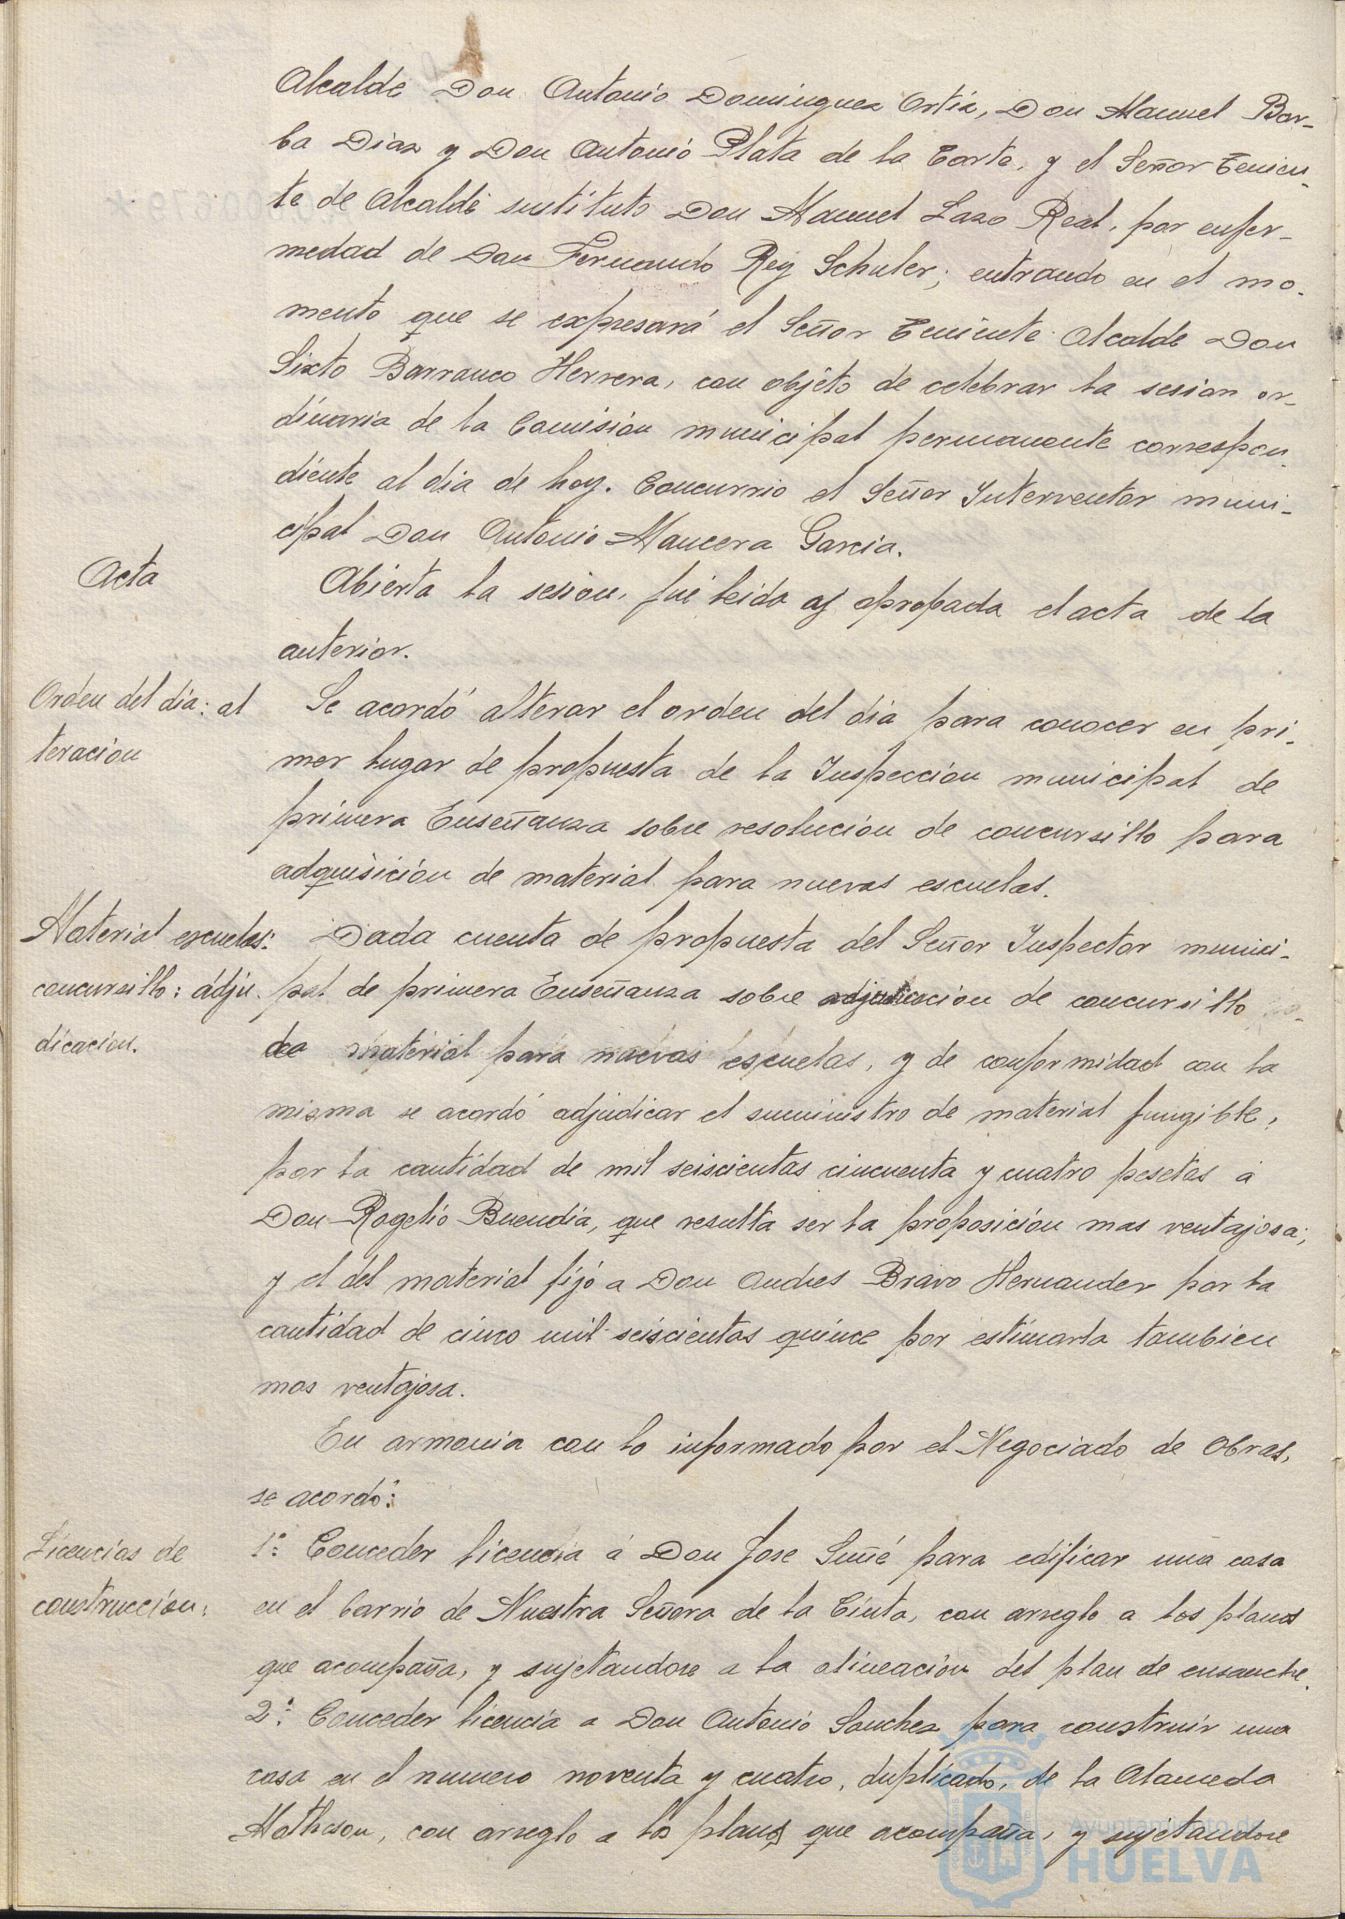 Alcalde Don Antonio Dominguez Ortiz, Don Manuel Bar-
ba Diaz y Don Antonio Plata de la Corte, y el Señor Tenien-
te de Alcalde sustituto Don Manuel Lazo Real, por enfer-
medad de Don Fernando Rey Schuler; entrando en el mo-
mento que se expresará el Señor Teniente Alcalde Don
Sixto Barranco Herrera, con objeto de celebrar la sesion or-
dinaria de la Comisión municipal permanente correspon-
diente al dia de hoy. Concurrio el Señor Interventor muni-
cipal Don Antonio Mancera Garcia.
Acta
Abierta la sesion, fué leida y aprobada el acta de la
anterior.
Orden del dia: al
teracion
Se acordó alterar el orden del dia para conocer en pri-
mer lugar de propuesta de la Inspección municipal de
primera Enseñanza sobre resolucion de concursillo para
adquisición de material para nuevas escuelas.
Material escuelas:
concursillo: adju-
dicacion.
Dada cuenta de propuesta del Señor Inspector munici-
pal de primera Enseñanza sobre adjudicacion de concursillo
de material para nuevas escuelas, y de conformidad con la
misma se acordó adjudicar el suministro de material fungible,
por la cantidad de mil seiscientas cincuenta y cuatro pesetas á
Don Rogelio Buendia, que resulta ser la proposición mas ventajosa;
y el del material fijó a Don Andres Bravo Hernandez por la
cantidad de cinco mil seiscientas quince por estimarla tambien
mas ventajosa.
En armonia con lo informado por el Negociado de Obras,
se acordó:
Licencias de
construcción:
1º: Conceder licencia á Don Jose Suñé para edificar una casa
en el barrio de Nuestra Señora de la Cinta, con arreglo a los planos
que acompaña, y sujetandose a la alineacion del plan de ensanche.
2º: Conceder licencia a Don Antonio Sanchez para construir una
casa en el numero noventa y cuatro, duplicado, de la Alameda
Matheson, con arreglo a los planos que acompaña, y sujetandose
Ayuntamiento de
HUELVA